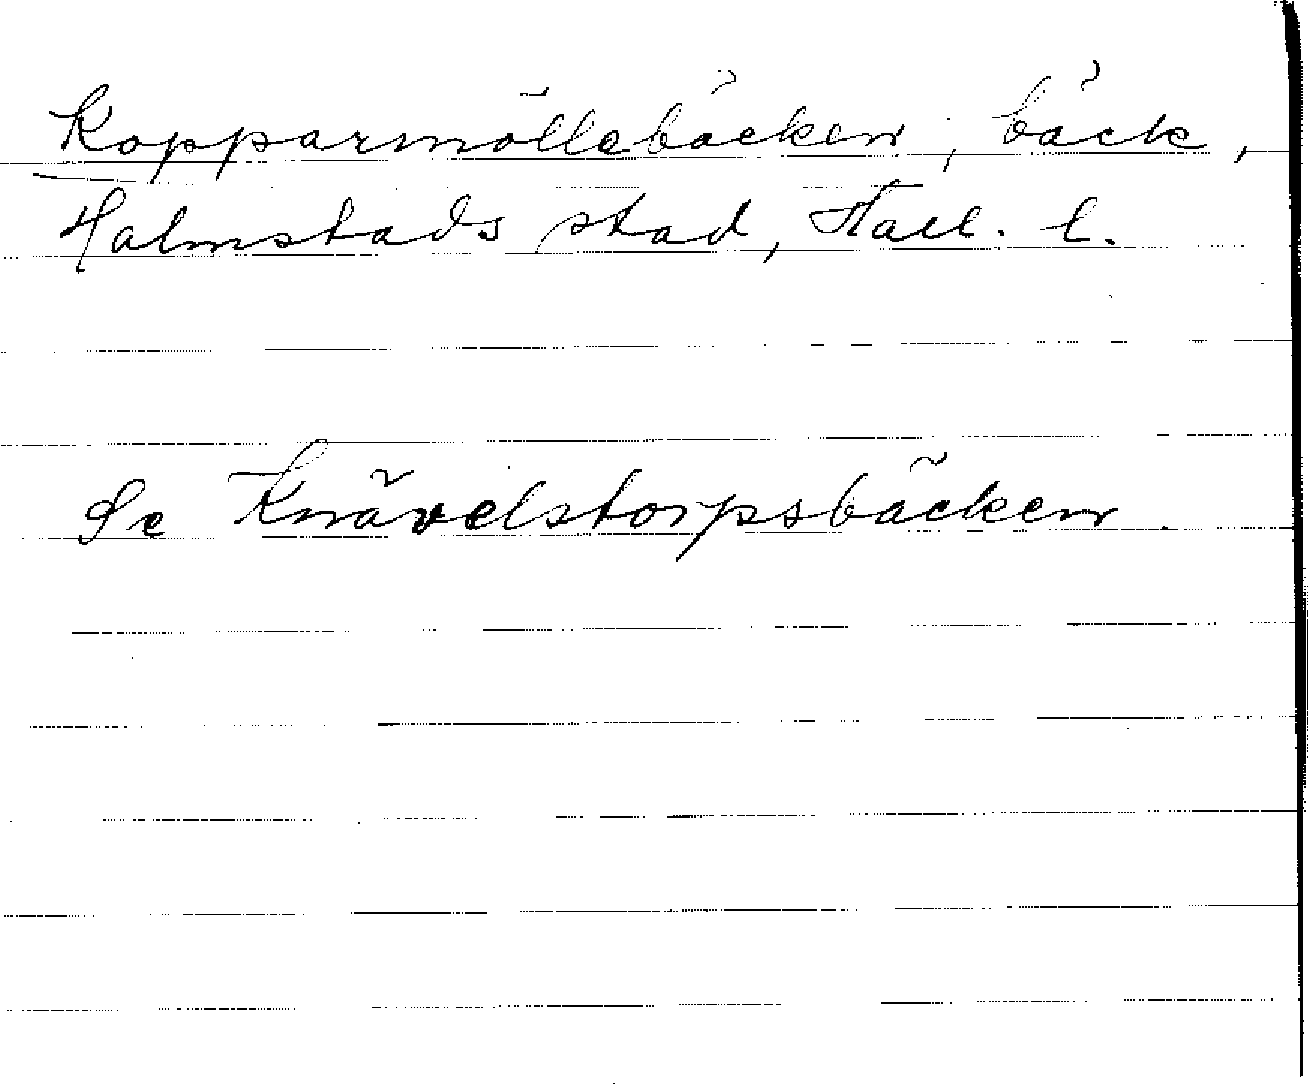 Kopparmöllebäcken, bäck,
Halmstads stad, Hall. l.
Se Knävelstorpsbäcken.